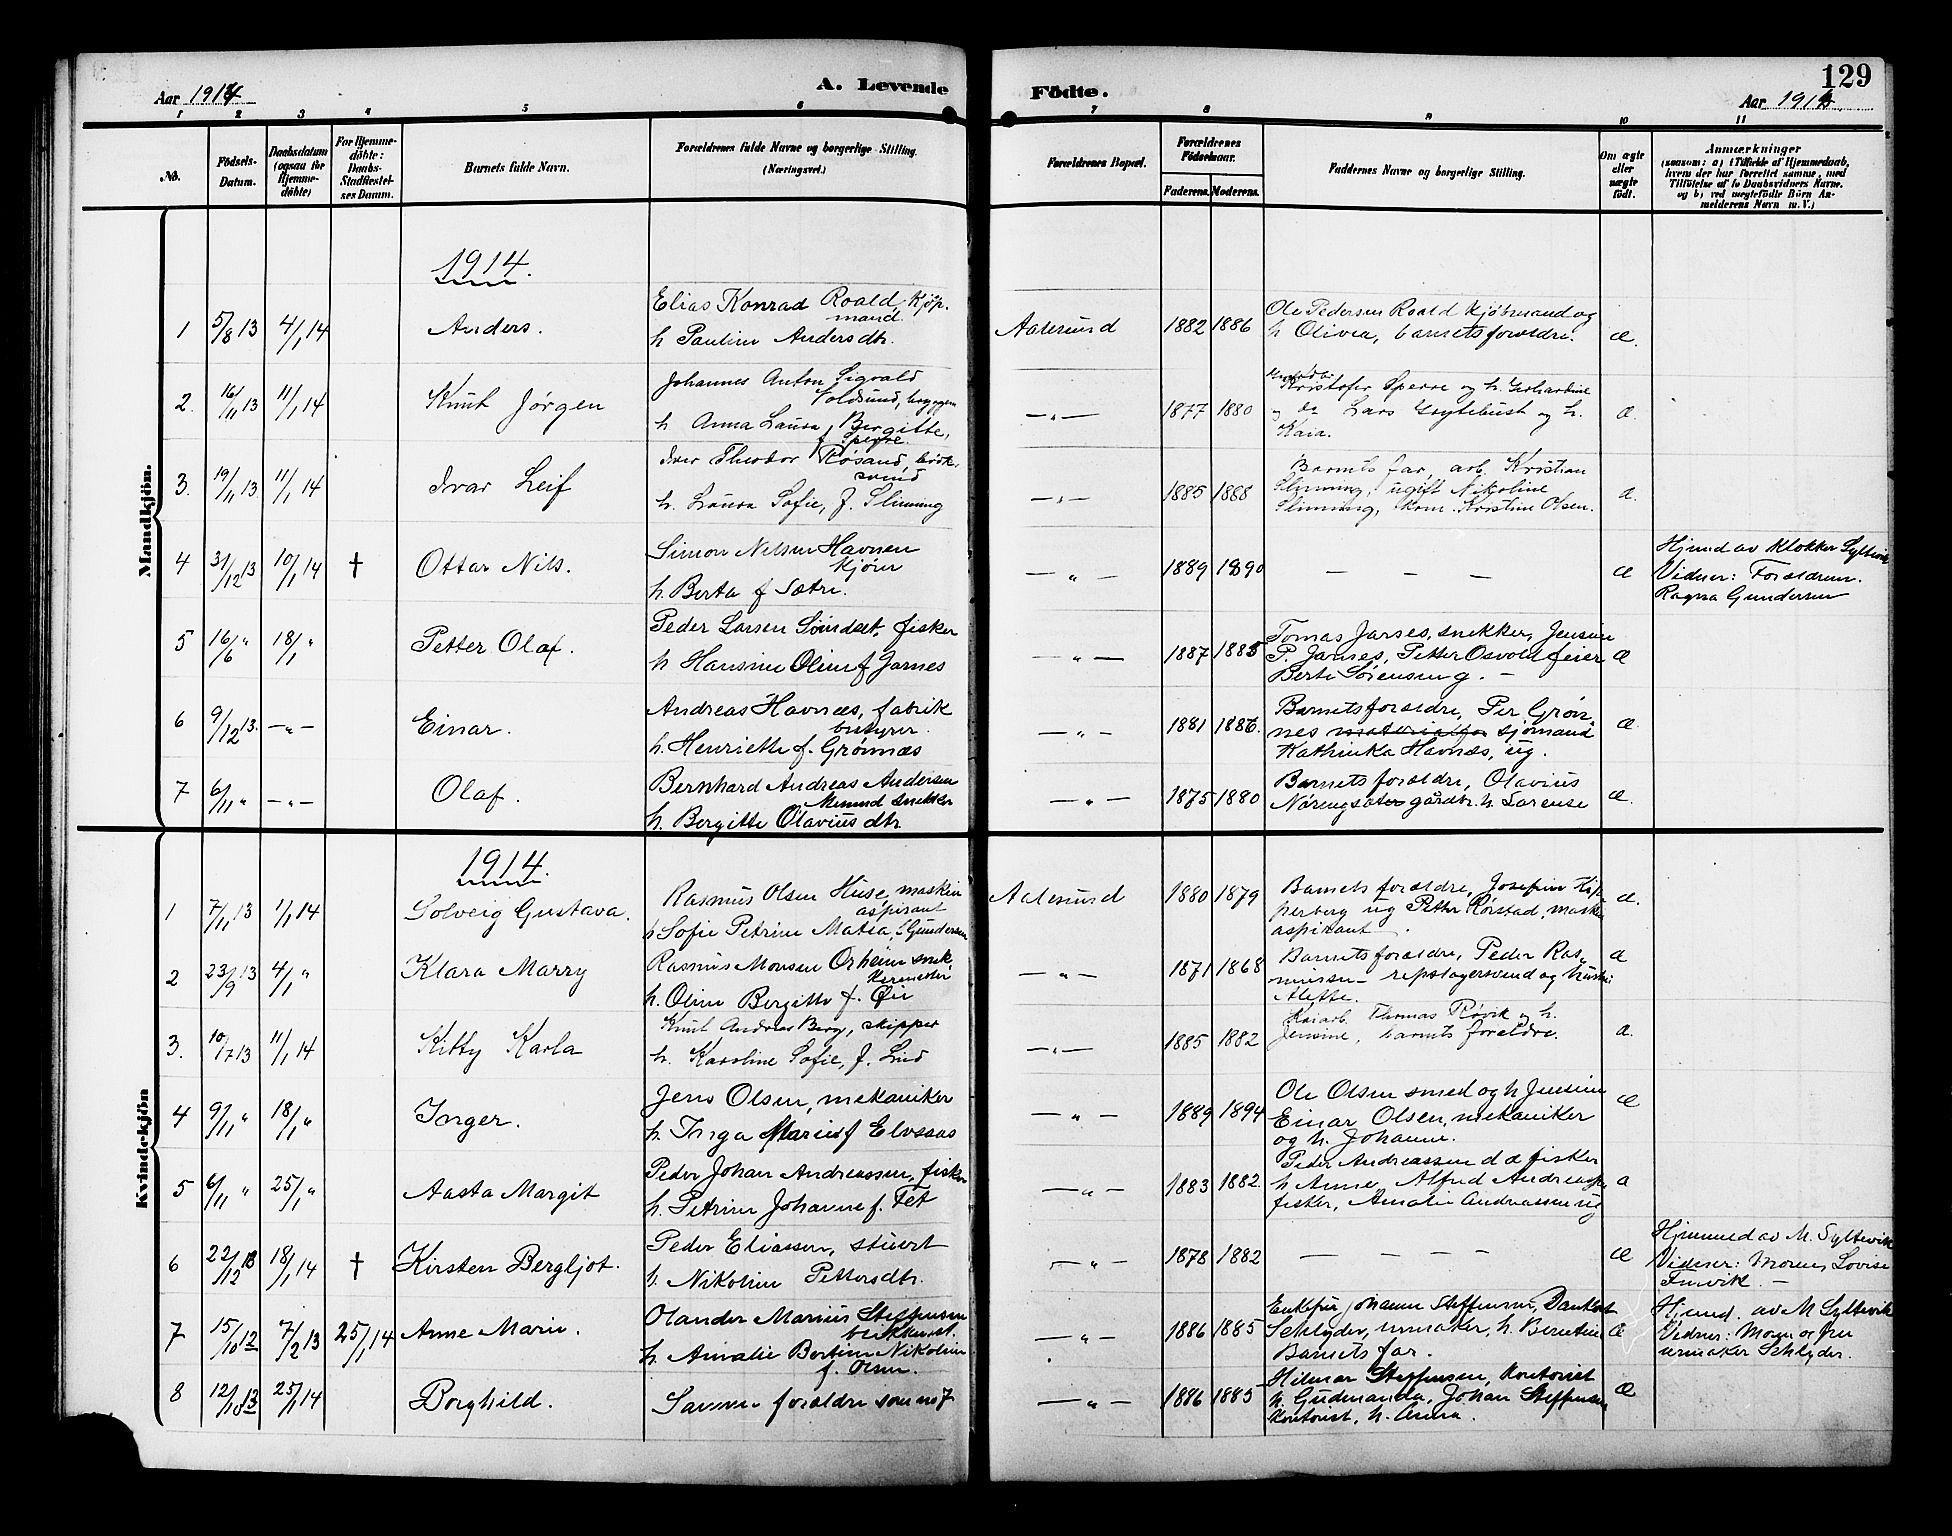 129
Aar 1914
A. Levende
Födte.
Aar 1914
1 2 3 4 5 6 7 8 9 10 11
No.
Födsels-
Datum.
Daabsdatum
(ogsaa for
Hjemme-
döbte)
For Hjemme-
döbte:
Daabs-
Stadfæstel-
ses Datum.
Barnets fulde Navn.
Forældrenes fulde Navne og borgerlige Stilling.
(Næringsvei.)
Forældrenes Bopæl.
Forældrenes
Födselsaar.
Faderens. Moderens.
Faddernes Navne og borgerlige Stilling.
Om ægte
eller
uægte
födt.
Anmærkninger
(saasom: a) i Tilfælde af Hjemmedaab,
hvem der har forrettet samme, med
Tilföielse af to Daabsvidners Navne.
og b) ved uægtefödte Börn An-
melderens Navn m. V.)
Mandkjön.
1914.
1 5/8 13 4/1 14 Anders.
Elias Konrad Roald kjøp-
mand.
h Pauline Andersdtr.
Aalesund 1882 1886
Ole Pedersen Roald kjøbmand og
h Olivia, barnets forældre.
æ.
2. 16/11 13 11/1 14 Knut Jörgen
Johannes Anton Sigvald
Voldsund,
h Anna Laura Bergitte,
f Sperre.
— " — 1877 1880
Kristofer Sperre og h. Gerhardine
og Lars Grytebust og h.
Kaia.
æ.
3. 19/11 13 11/1 14 Ivar Leif
Iver Theodor Røsand,
svend
h. Laura Sofie, f. Slinning
— " — 1885 1888
Barnets far, arb. Kristian
Slinning, ugift Nikoline
Slinning, Kristine Olsen.
æ.
4 31/12 13 10/1 14 † Ottar Nils.
Simon Nilsen Havnen
kjører
h. Berta f Sætre.
— " — 1889 1890 — — — æ
Hjemd av klokker Syltevik
Vidner: Forældrene.
Ragna Gundersen
5 16/6 " 18/1 " Petter Olaf.
Peder Larsen fisker
h Hansine Oline f Jarnes
— " — 1887 1885
Tomas Jarnes, snekker, Jensine
P. Jarnes, Petter Osvold feier
Berte Sörensen g. —
æ
6 9/12 13. — " — Einar.
Andreas Havnæs, fabrik
bestyrer.
h. Henriette f. Grønnæs
— " — 1881 1886.
Barnets forældre, Per Grøn-
nes sjømand
Kathinka Havnæs, ug.
æ.
7 6/11 " — " — Olaf.
Bernhard Andreas Andersen
snekker
h. Bergitte Olaviusdtr
— " — 1875 1880
Barnets forældre, Olavius
gårdbr. h. Larense
æ.
Kvindekjön
1914.
1 7/11 13 1/1 14 Solveig Gustava.
Rasmus Olsen Huse, maskin
aspirant
h Sofie Petrine Matea, f Gundersen
Aalesund 1880 1879
Barnets forældre, Josefine Kip-
perberg ug Petter Rørstad, maskin
aspirant.
æ.
2 23/9 13 4/1 " Klara Marry
Rasmus Monsen Orheim snek-
kermester
h. Oline Bergitte f. Øie
— " — 1871 1868
Barnets forældre, Peder Ras-
mussen — repslagersvend og hustru
Alette.
æ
3. 10/7 13 11/1 14 Kitty Karla
Knut Andreas Berg, skipper
h. Karoline Sofie, f. Lind
— " — 1885 1882
Kaiarb. Thomas Røvik og h.
Jensine, barnets forældre.
æ.
4 9/11 " 18/1 " Inger.
Jens Olsen, mekaniker
h. Inga Marie f Elvsaas
— " — 1889 1894
Ole Olsen smed og h Jensine
Einar Olsen, mekaniker
og h. Johanne.
æ
5 6/11 " 25/1 " Aasta Margit
Peder Johan Andreassen, fisker
h. Petrine Johanne f. Fet
— " — 1883 1882.
Peder Andreassen d æ fisker
h Anne, Alfred Andreassen
fisker, Amalie Andreassen ug
æ
6 22/12 13 18/1 14 † Kirsten Bergljot.
Peder Eliassen, stuert
h. Nikoline Pettersdtr.
— " — 1878 1882 — — — — æ
Hjemmed av M. Syltevik
Vidner: Moren, Lovise
—
7 15/10 12 7/2 13 25/1 14 Anne Marie.
Olander Marius Steffensen
h. Amalie Bertine Nikoline
f. Olsen.
— " — 1886 1885
Enkefru Johanne Steffensen,
Schlyder, urmaker, h. Berntine
Barnets far.
æ
Hjemd. av M Syltevik
Vidner: Moren og fru
urmaker Schlyder.
8 12/10 13 25/1 14 Borghild.
Samme forældre som no 7
— " — 1886 1885
Hilmar Steffensen, kontorist
h. Gudmanda, Johan Steffensen
kontorist, h. Anna.
æ